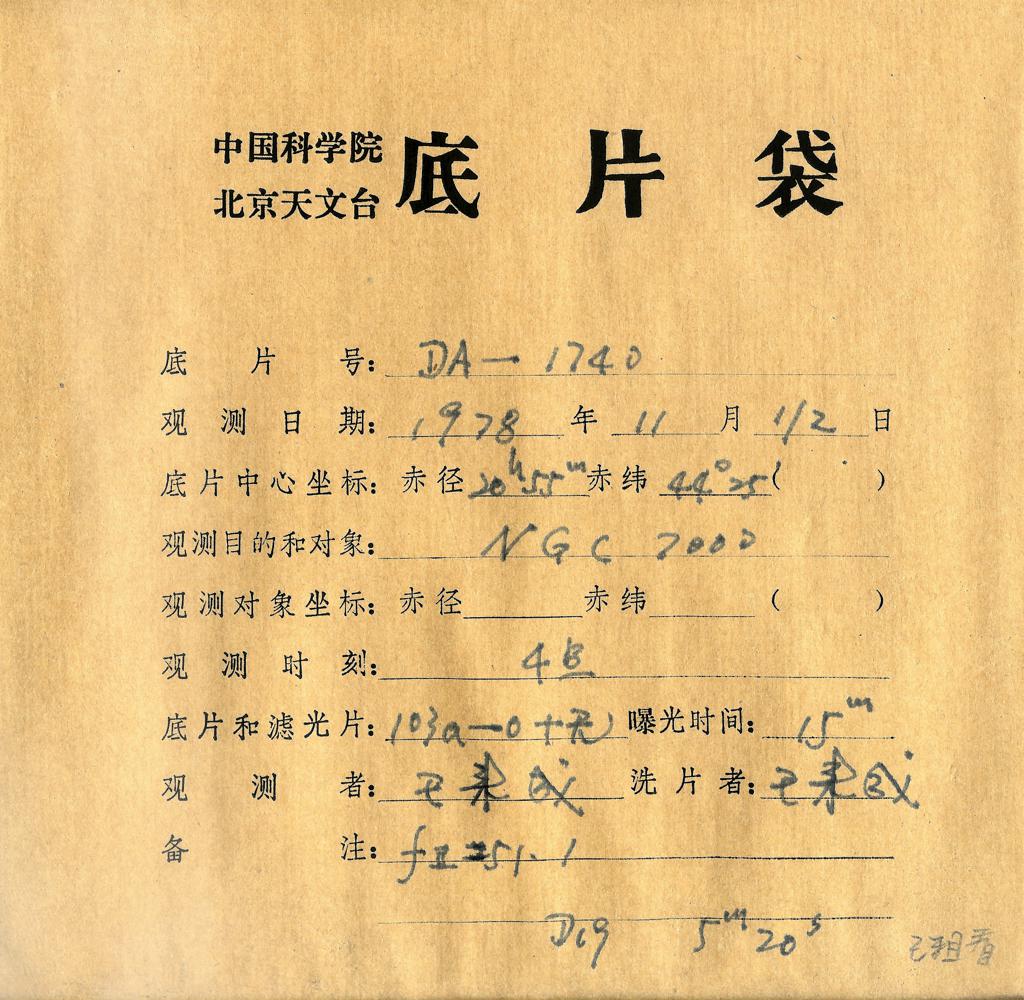 中国科学院
北京天文台 底片袋
底片号: DA—1740
观测日期: 1978 年 11 月 1/2 日
底片中心坐标: 赤径 20h55m 赤纬 44°25 ( )
观测目的和对象: NGC 7000
观测对象坐标: 赤径 赤纬 ( )
观测时刻:
底片和滤光片: 103a—O+无 曝光时间: 15m
观测者: 洗片者:
备注: fII=51.1
D19 5m20s
已粗看